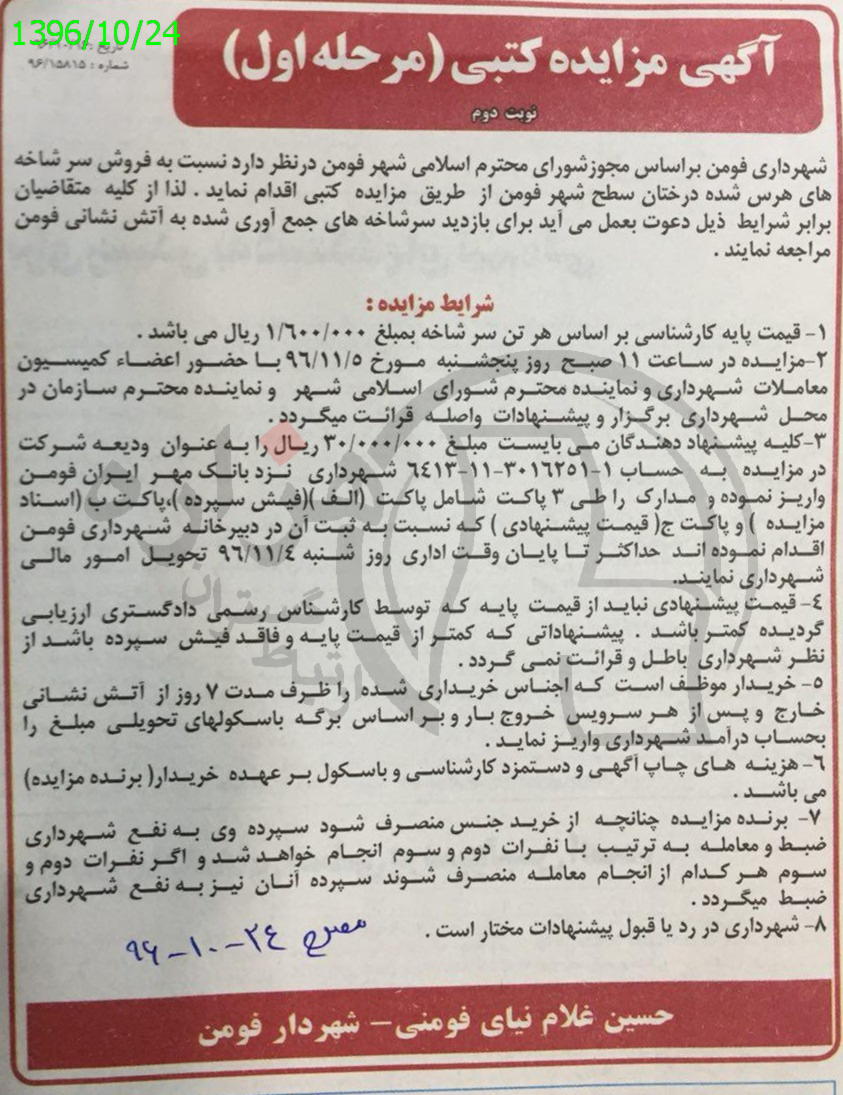 1396/10/24
شماره : ۹۶/۱۵۸۱۵
آگهی مزایده کتبی (مرحله اول)
نوبت دوم
شهرداری فومن براساس مجوزشورای محترم اسلامی شهر فومن درنظر دارد نسبت به فروش سر شاخه
های هرس شده درختان سطح شهر فومن از طریق مزایده کتبی اقدام نماید . لذا از کلیه متقاضیان
برابر شرایط ذیل دعوت بعمل می آید برای بازدید سرشاخه های جمع آوری شده به آتش نشانی فومن
مراجعه نمایند .
شرایط مزایده :
۱- قیمت پایه کارشناسی بر اساس هر تن سر شاخه بمبلغ ۱/۶۰۰/۰۰۰ ریال می باشد .
۲-مزایده در ساعت ۱۱ صبح روز پنجشنبه مورخ ۹۶/۱۱/۵ با حضور اعضاء کمیسیون
معاملات شهرداری و نماینده محترم شورای اسلامی شهر و نماینده محترم سازمان در
محل شهرداری برگزار و پیشنهادات واصله قرائت میگردد .
۳-کلیه پیشنهاد دهندگان می بایست مبلغ ۳۰/۰۰۰/۰۰۰ ریال را به عنوان ودیعه شرکت
در مزایده به حساب ۱-۳۰۱۶۲۵۱-۱۱-۶۴۱۳ شهرداری نزد بانک مهر ایران فومن
واریز نموده و مدارک را طی ۳ پاکت شامل پاکت (الف )(فیش سپرده )،پاکت ب (اسناد
مزایده ) و پاکت ج( قیمت پیشنهادی ) که نسبت به ثبت آن در دبیرخانه شهرداری فومن
اقدام نموده اند حداکثر تا پایان وقت اداری روز شنبه ۹۶/۱۱/۴ تحویل امور مالی
شهرداری نمایند.
۴- قیمت پیشنهادی نباید از قیمت پایه که توسط کارشناس رسمی دادگستری ارزیابی
گردیده کمتر باشد . پیشنهاداتی که کمتر از قیمت پایه و فاقد فیش سپرده باشد از
نظر شهرداری باطل و قرائت نمی گردد .
۵- خریدار موظف است که اجناس خریداری شده را ظرف مدت ۷ روز از آتش نشانی
خارج و پس از هر سرویس خروج بار و بر اساس برگه باسکولهای تحویلی مبلغ را
بحساب درآمد شهرداری واریز نماید .
۶- هزینه های چاپ آگهی و دستمزد کارشناسی و باسکول بر عهده خریدار( برنده مزایده)
می باشد .
۷- برنده مزایده چنانچه از خرید جنس منصرف شود سپرده وی به نفع شهرداری
ضبط و معامله به ترتیب با نفرات دوم و سوم انجام خواهد شد و اگر نفرات دوم و
سوم هر کدام از انجام معامله منصرف شوند سپرده آنان نیز به نفع شهرداری
ضبط میگردد .
۸- شهرداری در رد یا قبول پیشنهادات مختار است .
۲۴-۱۰-۹۶
حسین غلام نیای فومنی- شهردار فومن